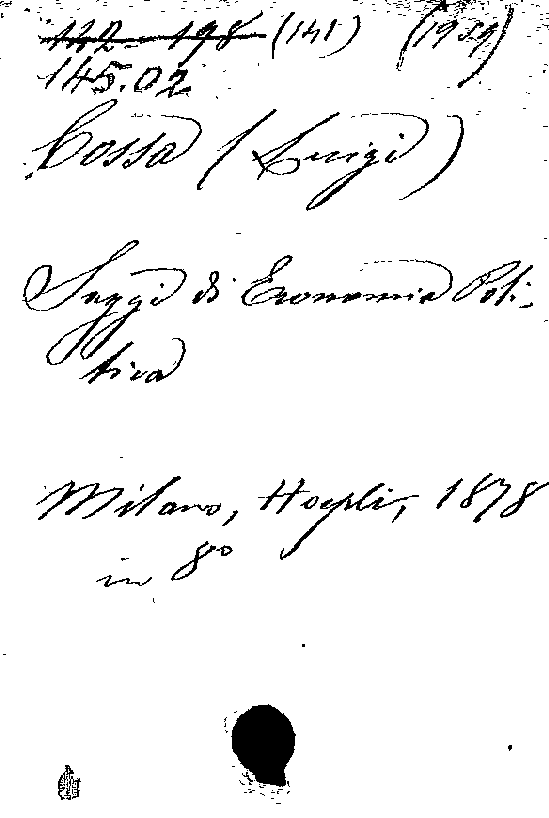 142 - 198 (141) (1959)
145.02
Cossa (Luigi)
Saggi di Economia Poli-
tica
Milano, Hoepli, 1878
in 8º